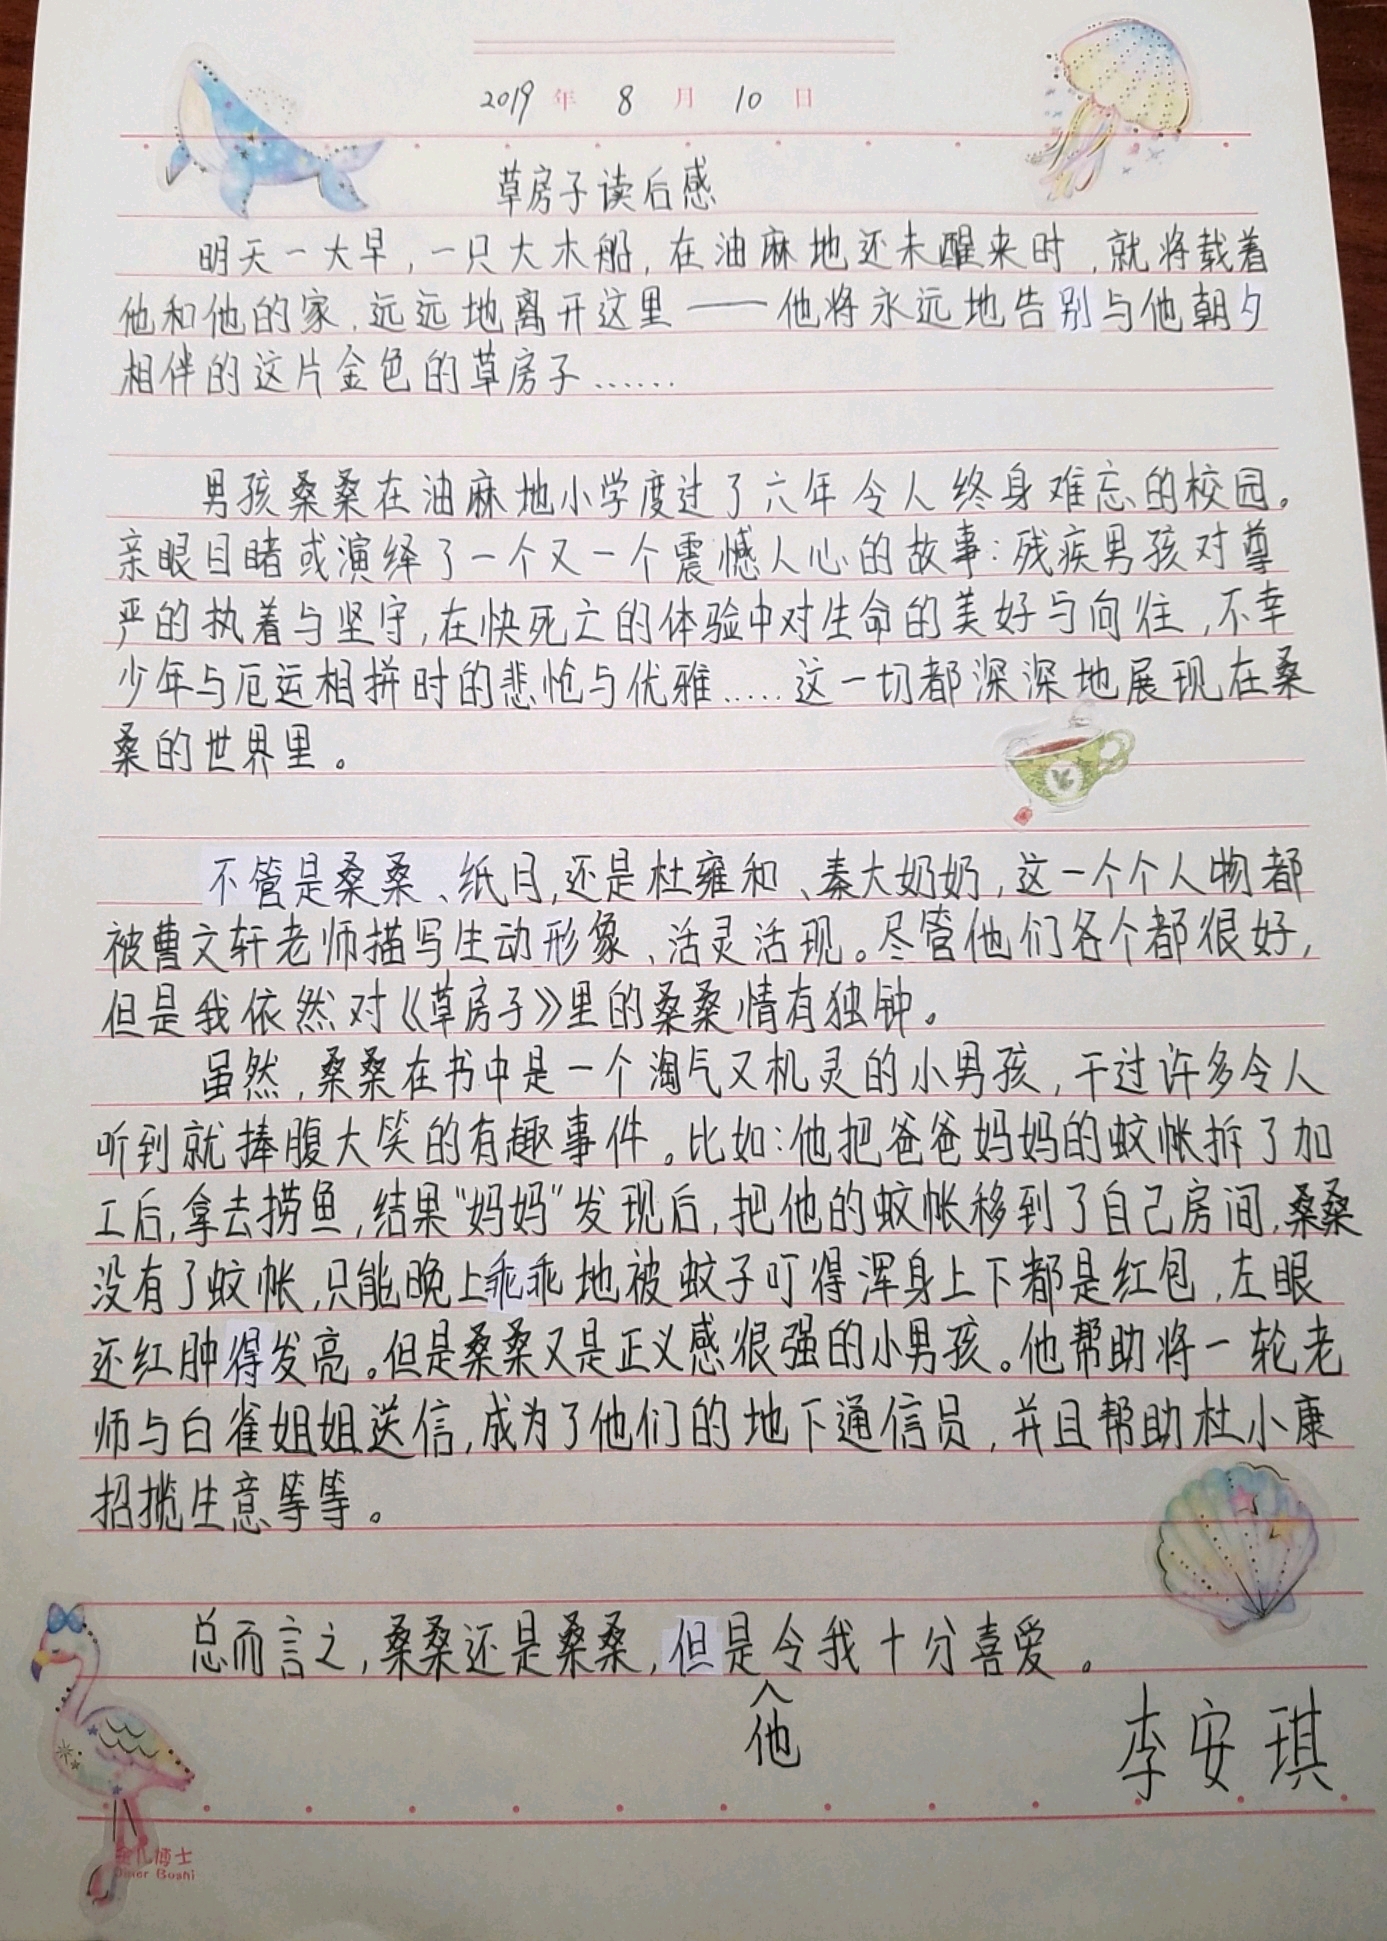 2019年 8月 10日
草房子读后感
明天一大早，一只大木船，在油麻地还未醒来时，就将载着
他和他的家，远远地离开这里——他将永远地告别与他朝夕
相伴的这片金色的草房子……
男孩桑桑在油麻地小学度过了六年令人终身难忘的校园。
亲眼目睹或演绎了一个又一个震憾人心的故事：残疾男孩对尊
严的执着与坚守，在快死亡的体验中对生命的美好与向往，不幸
少年与厄运相拼时的悲怆与优雅……这一切都深深地展现在桑
桑的世界里。
不管是桑桑、纸月，还是杜雍和、秦大奶奶，这一个个人物都
被曹文轩老师描写生动形象、活灵活现。尽管他们各个都很好，
但是我依然对《草房子》里的桑桑情有独钟。
虽然，桑桑在书中是一个淘气又机灵的小男孩，干过许多令人
听到就捧腹大笑的有趣事件。比如：他把爸爸妈妈的蚊帐拆了加
工后，拿去捞鱼，结果“妈妈”发现后，把他的蚊帐移到了自己房间，桑桑
没有了蚊帐，只能晚上乖乖地被蚊子叮得浑身上下都是红包，左眼
还红肿得发亮。但是桑桑又是正义感很强的小男孩。他帮助将一轮老
师与白雀姐姐送信，成为了他们的地下通信员，并且帮助杜小康
招揽生意等等。
总而言之，桑桑还是桑桑，但是令我十分喜爱。
他
李安琪
金儿博士
Jiner Boshi